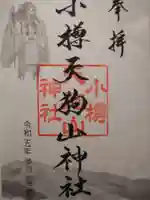 奉拝
小樽天狗山神社
小樽
神社
令和五年